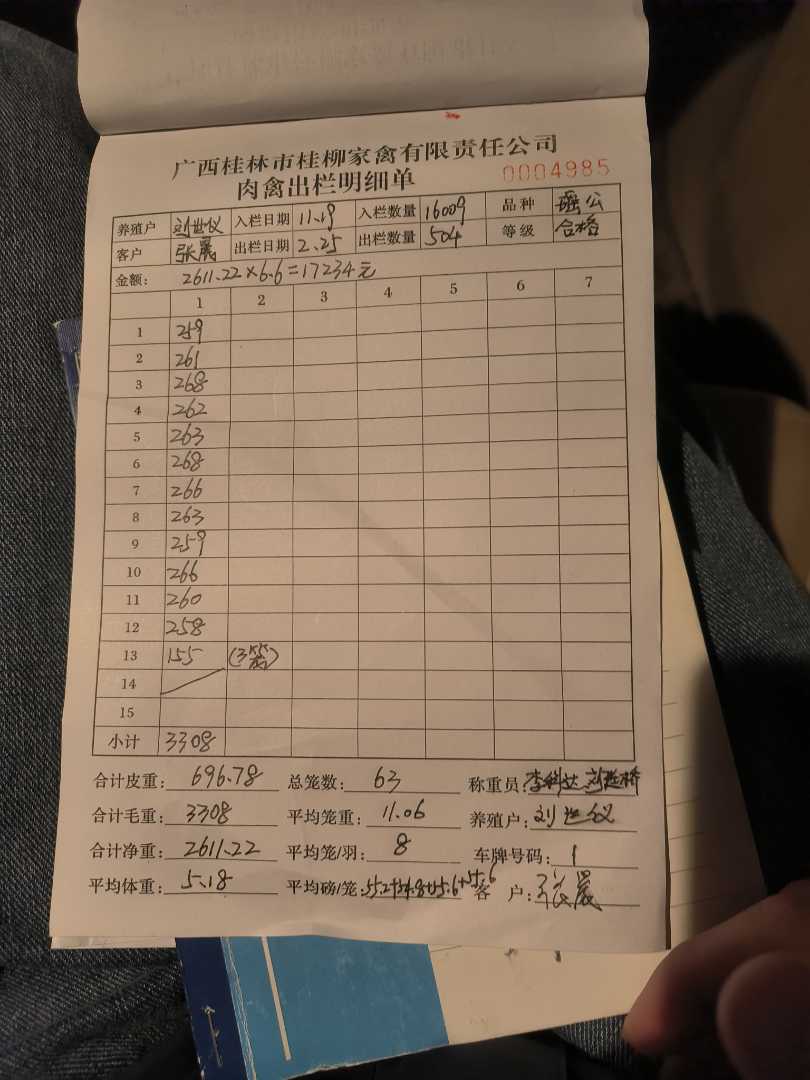 广西桂林市桂柳家禽有限责任公司
肉禽出栏明细单 0004985
养殖户 刘世仪 入栏日期 11.19 入栏数量 16009 品种 瑶公
客户 张晨 出栏日期 2.25 出栏数量 504 等级 合格
金额: 2611.22×6.6=17234元
1 2 3 4 5 6 7
1 259
2 261
3 268
4 262
5 263
6 268
7 266
8 263
9 259
10 266
11 260
12 258
13 155 (3笼)
14
15
小计 3308
合计皮重: 696.78 总笼数: 63 称重员:
合计毛重: 3308 平均笼重: 11.06 养殖户: 刘世仪
合计净重: 2611.22 平均笼/羽: 8 车牌号码: 1
平均体重: 5.18 平均磅/笼: 客户: 张晨